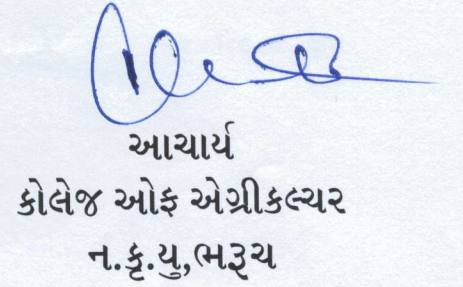 આચાર્ય
કોલેજ ઓફ એગ્રીકલ્ચર
ન.કૃ.યુ,ભરૂચ